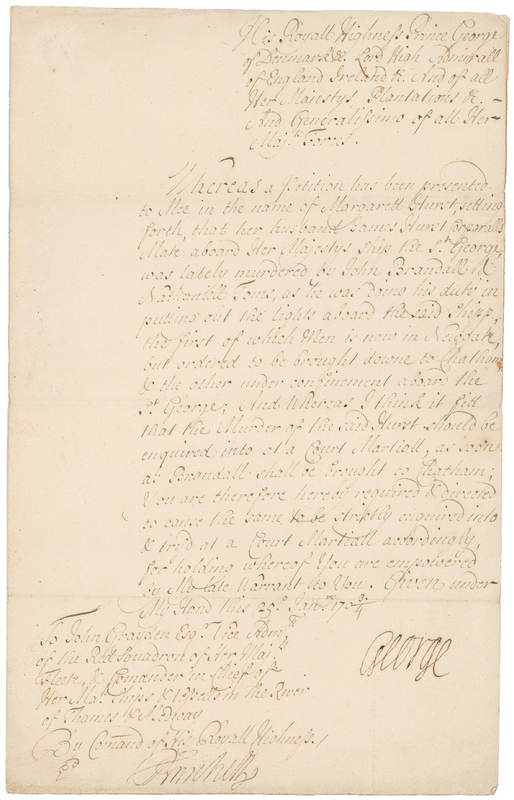 His Royall Highness Prince George
of Denmark &c. Lord High Admirall
of England Ireland &c. And of all
Her Majestys Plantations &c. –
And Generalissimo of all Her
Maj.ts Forces.
Whereas a Petition has been presented
to Mee in the name of Margarett Hurst, setting
forth, that her husband James Hurst Corporalls
Mate aboard Her Majestys Ship the S.t George,
was lately murdered by John Brandall &
Nathaniell Toms, as he was doing his duty in
putting out the lights aboard the said Shipp,
the first of which Men is now in Newgate,
but ordered to be brought downe to Chatham
& the other under confinement aboard the
S.t George; And Whereas I think it fitt
that the Murder of the said Hurst should be
enquired into at a Court Martiall, as soon
as Brandall shall be brought to Chatham;
You are therefore hereby required & directed
to cause the same to be strictly enquired into
& try'd at a Court Martiall accordingly,
for holding whereof You are empowered
by My late Warrant to You. Given under
My Hand this 29.º Jan.ry 170 3/4
George
To John Graydon Esq.r Vice Adm.ll
of the Red Squadron of Her Maj.ts
Fleete, & Comander in Chief of
Her Ma.ts Ships & Vessells in the River
of Thames & Medway
By Comand of His Royall Highness